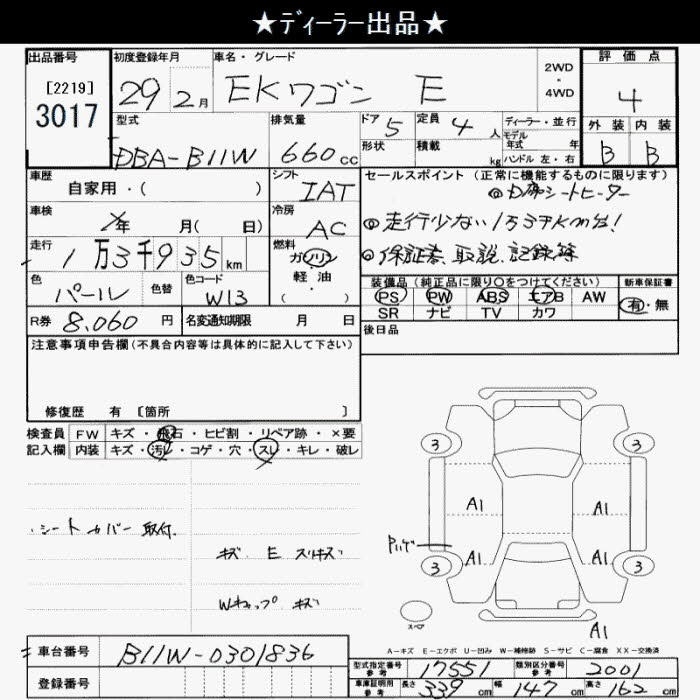 ★ディーラー出品★
出品番号 初度登録年月 車名・グレード 評価点
[2219] 29 2月 EKワゴン E 2WD・4WD 4
3017
型式 排気量 ドア 5 定員 4人 ディーラー・並行 外装 内装
モデル年式 年
DBA-B11W 660cc 形状 積載 kg ハンドル 左・右 B B
車歴 シフト セールスポイント(正常に機能するものに限ります)
自家用・( ) IAT シートヒーター
車検 冷房 ◎走行少ない1万3千km台!
年 月( 日) AC
走行 1万3千935km 燃料 ◎保証書、取説、記録簿
ガソリン
軽油・( )
色 色替 色コード 装備品(純正品に限り○をつけてください) 新車保証書
パール W13 PS PW ABS エアB AW 有・無
SR ナビ TV カワ
R券 8,060円 名変通知期限 月 日 後日品
注意事項申告欄(不具合内容等は具体的に記入して下さい)
修復歴 有 [箇所 ]
検査員 FW キズ・飛石・ヒビ割・リペア跡・×要
記入欄 内装 キズ・汚レ・コゲ・穴・スレ・キレ・破レ
3 3
A1 A1
・シートカバー取付
キズ E スリキズ
A1 A1
3 3
Wキャップ キズ
スペア
A1
A-キズ E-エクボ U-凹み W-補修跡 S-サビ C-腐食 XX-交換済
車台番号 B11W-0301836
登録番号
型式指定番号 参考 17551 類別区分番号 参考 2001
車庫証明用 参考 長さ 339cm 幅 147cm 高さ 162cm